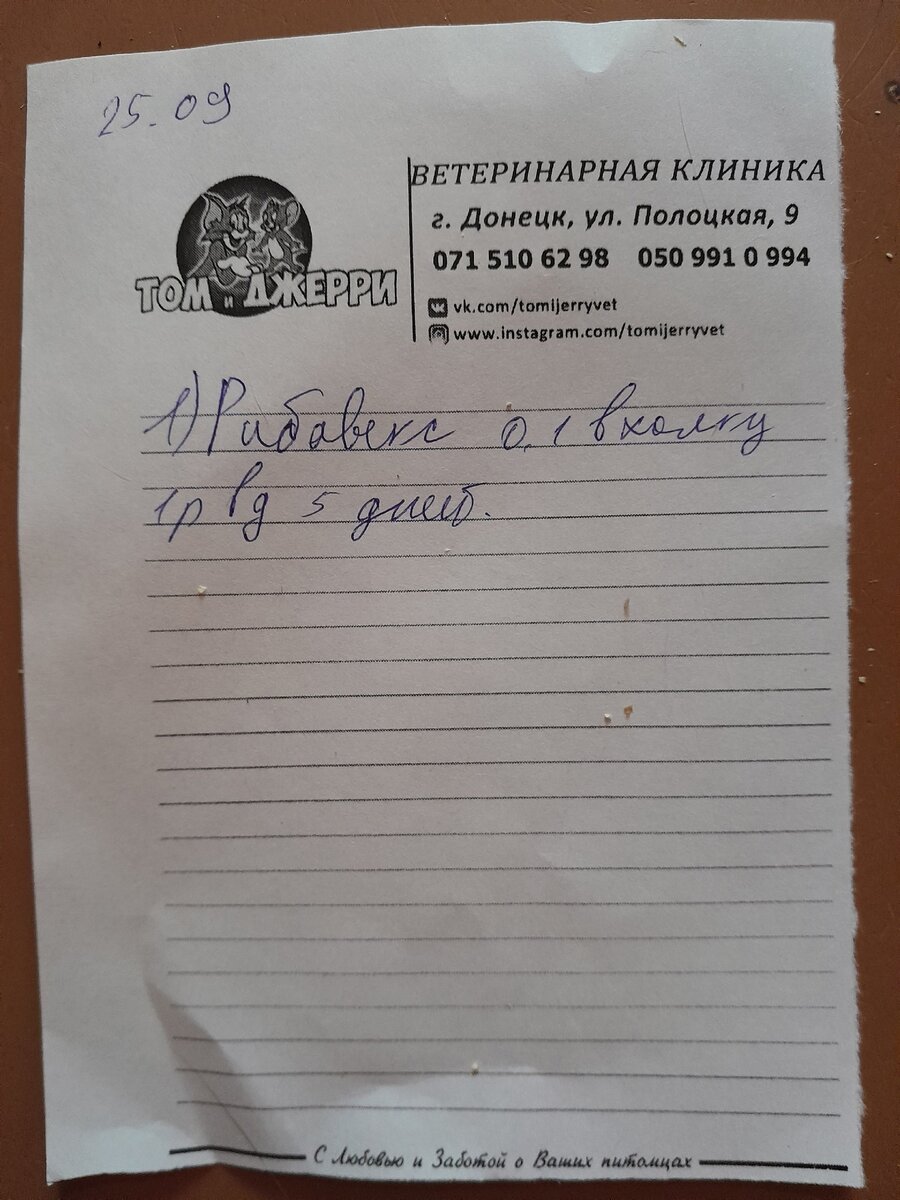 25.09
ТОМ и ДЖЕРРИ
ВЕТЕРИНАРНАЯ КЛИНИКА
г. Донецк, ул. Полоцкая, 9
071 510 62 98 050 991 0 994
vk.com/tomijerryvet
www.instagram.com/tomijerryvet
1) Рибовекс 0,1 в холку
1р в д 5 дней.
С Любовью и Заботой о Ваших питомцах